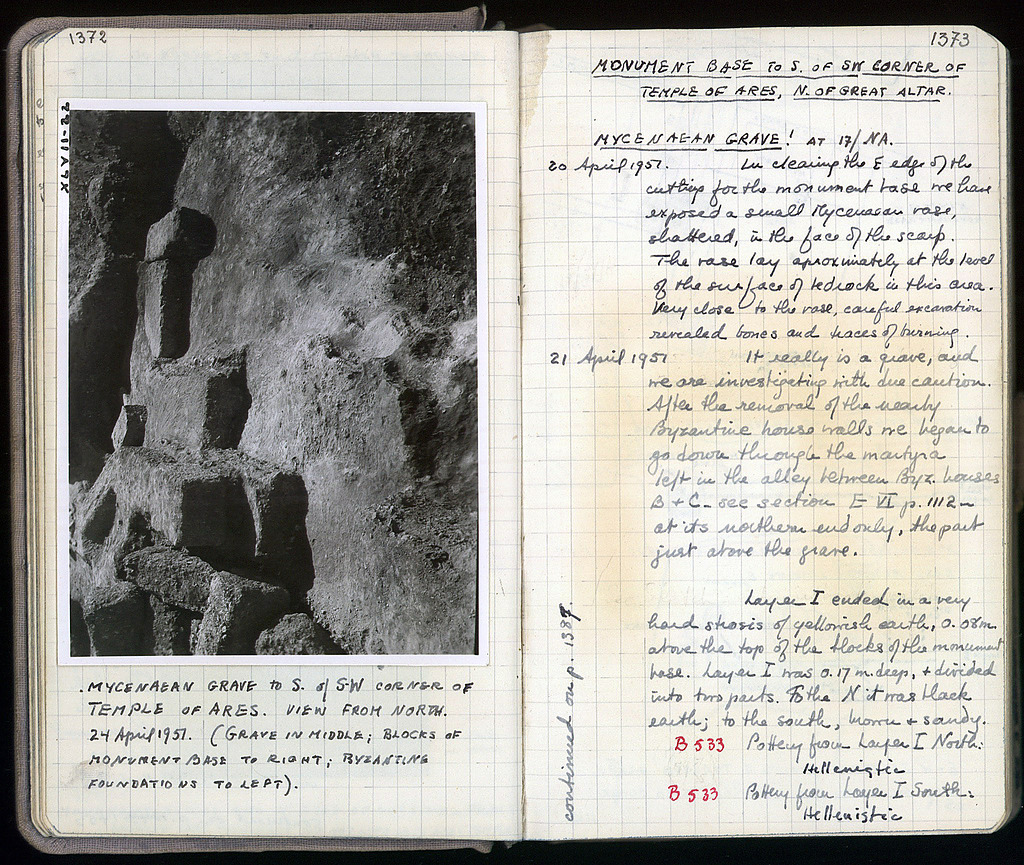 1372
.MYCENAEAN GRAVE to S. of SW CORNER OF
TEMPLE OF ARES. VIEW FROM NORTH.
24 April 1951. (GRAVE IN MIDDLE; BLOCKS OF
MONUMENT BASE TO RIGHT; BYZANTINE
FOUNDATIONS TO LEFT).
1373
MONUMENT BASE TO S. OF SW CORNER OF
TEMPLE OF ARES, N. OF GREAT ALTAR.
MYCENAEAN GRAVE! AT 17/NA.
20 April 1951. In clearing the E edge of the
cutting for the monument base we have
exposed a small Mycenaean vase,
shattered, in the face of the scarp.
The vase lay aproximately at the level
of the surface of bedrock in this area.
Very close to the vase, careful excavation
revealed bones and traces of burning.
21 April 1951 It really is a grave, and
we are investigating with due caution.
After the removal of the nearby
Byzantine house walls we began to
go down through the martyra
left in the alley between Byz. houses
B + C - see section E VI p. 1112 -
at its northern end only, the part
just above the grave.
Layer I ended in a very
hard strosis of yellowish earth, 0.08m
above the top of the blocks of the monument
base. Layer I was 0.17 m. deep, + divided
into two parts. To the N it was black
earth; to the south, brown + sandy.
B 533 Pottery from Layer I North:
Hellenistic
B 533 Pottery from Layer I South:
Hellenistic
continued on p. 1387.